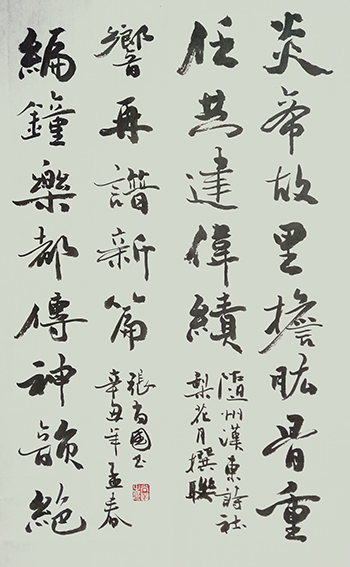 炎帝故里擔肱骨重
任共建偉績
隨州漢東詩社
梨花月撰聯
編鐘樂都傳神韻絕
響再譜新篇
張國書
辛丑年孟春